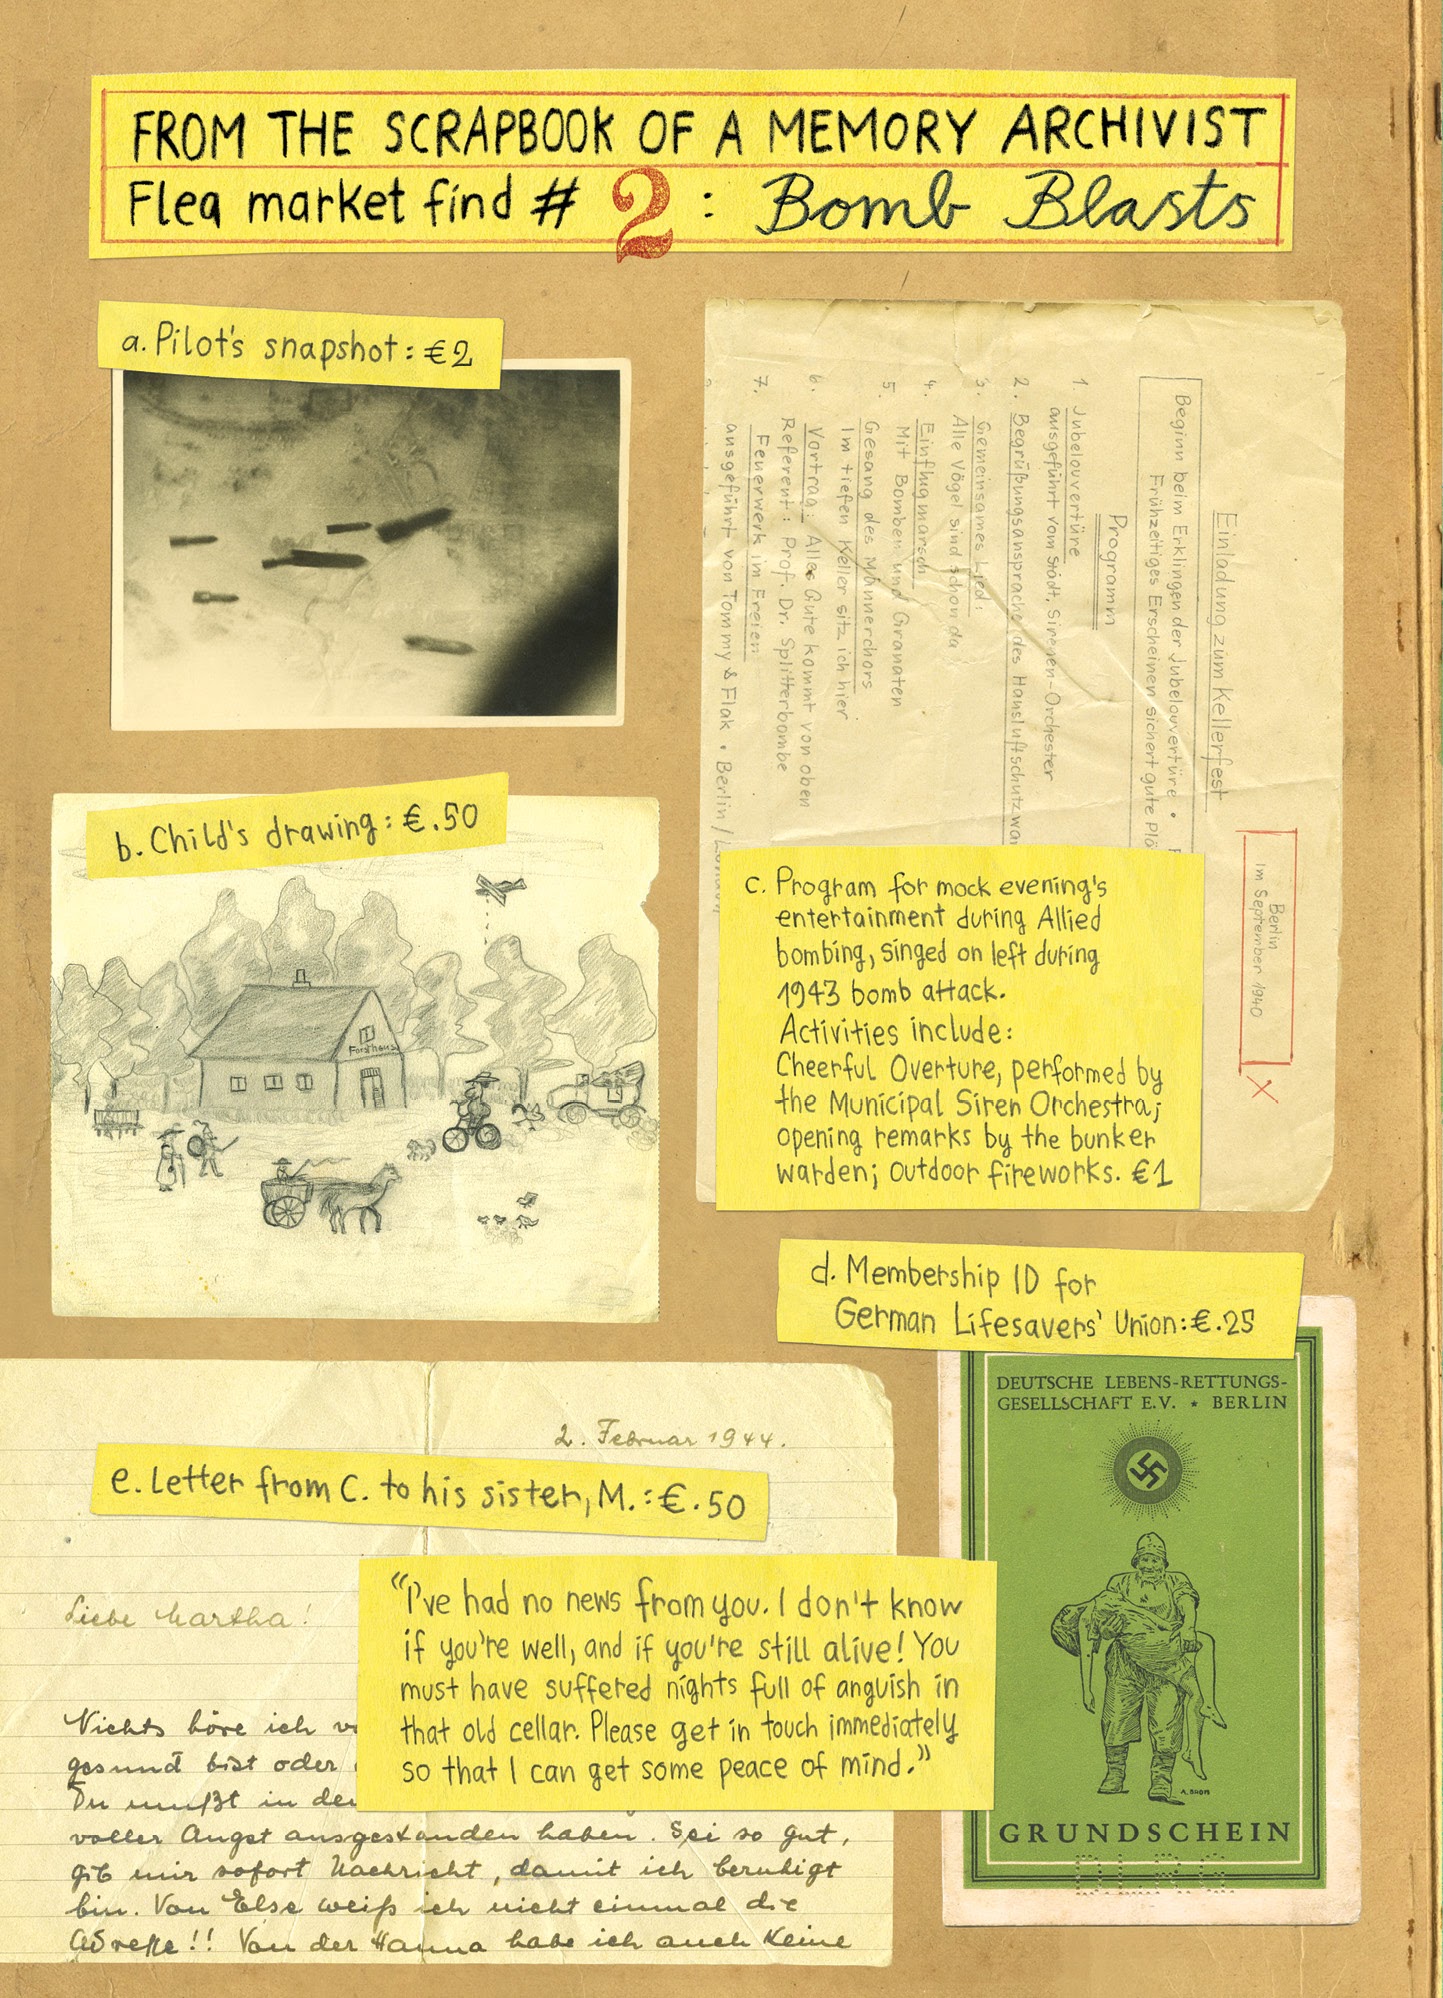 FROM THE SCRAPBOOK OF A MEMORY ARCHIVIST
Flea market find # 2: Bomb Blasts
a. Pilot's snapshot: €2
Einladung zum Kellerfest
Beginn beim Erklingen der Jubelouvertüre •
Frühzeitiges Erscheinen sichert gute Plä
Programm
1. Jubelouvertüre
ausgeführt vom Städt. Sirenen-Orchester
2. Begrüßungsansprache des Hausluftschutzwar
3. Gemeinsames Lied:
Alle Vögel sind schon da
4. Einflugmarsch
Mit Bomben und Granaten
5. Gesang des Männerchors
Im tiefen Keller sitz ich hier
6. Vortrag: Alles Gute kommt von oben
Referent: Prof. Dr. Splitterbombe
7. Feuerwerk im Freien
ausgeführt von Tommy & Flak • Berlin/London
Berlin
im September 1940
X
b. Child's drawing: €.50
Forsthaus
c. Program for mock evening's
entertainment during Allied
bombing, singed on left during
1943 bomb attack.
Activities include:
Cheerful Overture, performed by
the Municipal Siren Orchestra;
opening remarks by the bunker
warden; outdoor fireworks. €1
d. Membership ID for
German Lifesavers' Union: €.25
DEUTSCHE LEBENS-RETTUNGS-
GESELLSCHAFT E.V. ★ BERLIN
GRUNDSCHEIN
DLRG
2. Februar 1944.
e. Letter from C. to his sister, M.: €.50
Liebe Martha!
"I've had no news from you. I don't know
if you're well, and if you're still alive! You
must have suffered nights full of anguish in
that old cellar. Please get in touch immediately
so that I can get some peace of mind."
Nichts höre ich vo
gesund bist oder
Du mußt in de
voller Angst ausgestanden haben. Sei so gut,
gib mir sofort Nachricht, damit ich beruhigt
bin. Von Else weiß ich nicht einmal die
Adresse!! Von der Hanna habe ich auch keine